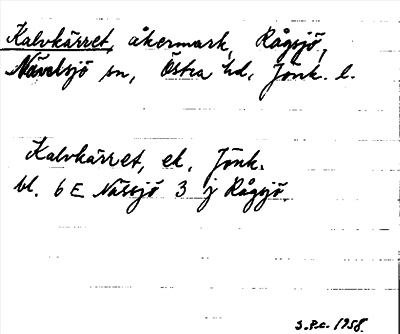 Kalvkärret, åkermark, Rågsjö,
Nävelsjö sn, Östra hd, Jönk. l.
Kalvkärret, ek. Jönk.
bl. 6 E Nässjö 3 j Rågsjö.
3.P.c. 1958.